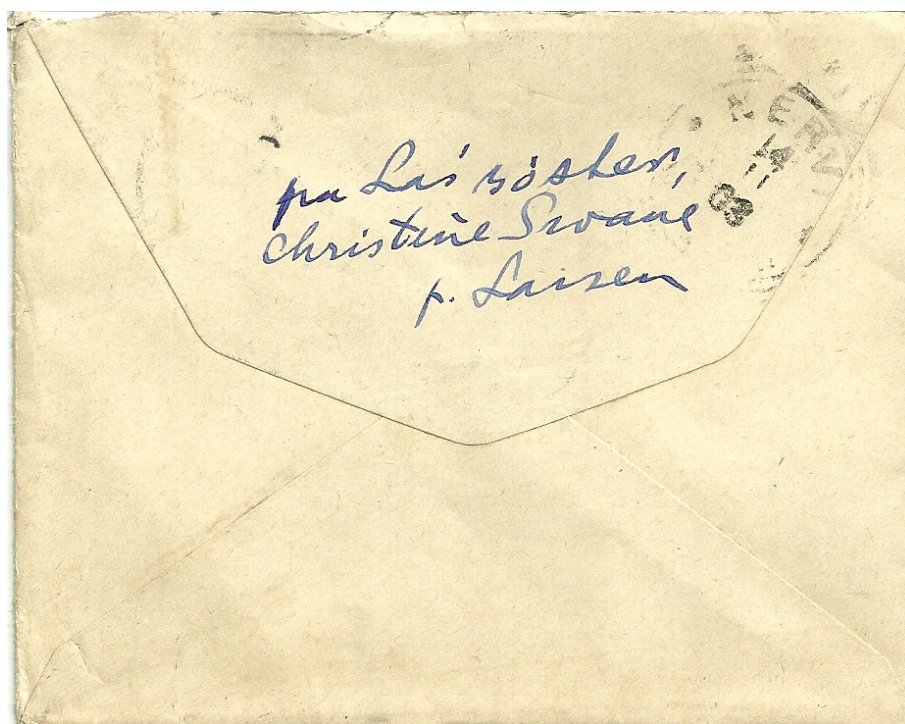 fra Las' söster,
Christine Swane
f. Larsen
KERT
14